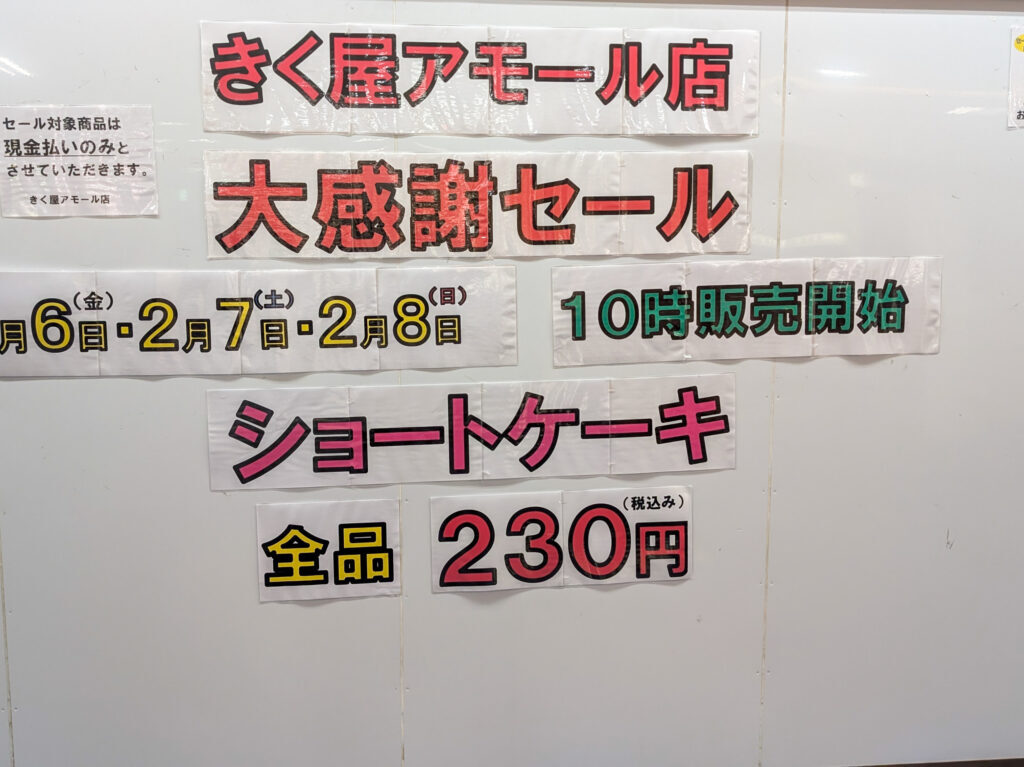 きく屋アモール店
大感謝セール
セール対象商品は
現金払いのみと
させていただきます。
きく屋アモール店
月6日(金)・2月7日(土)・2月8日(日)
10時販売開始
ショートケーキ
全品 230円(税込み)